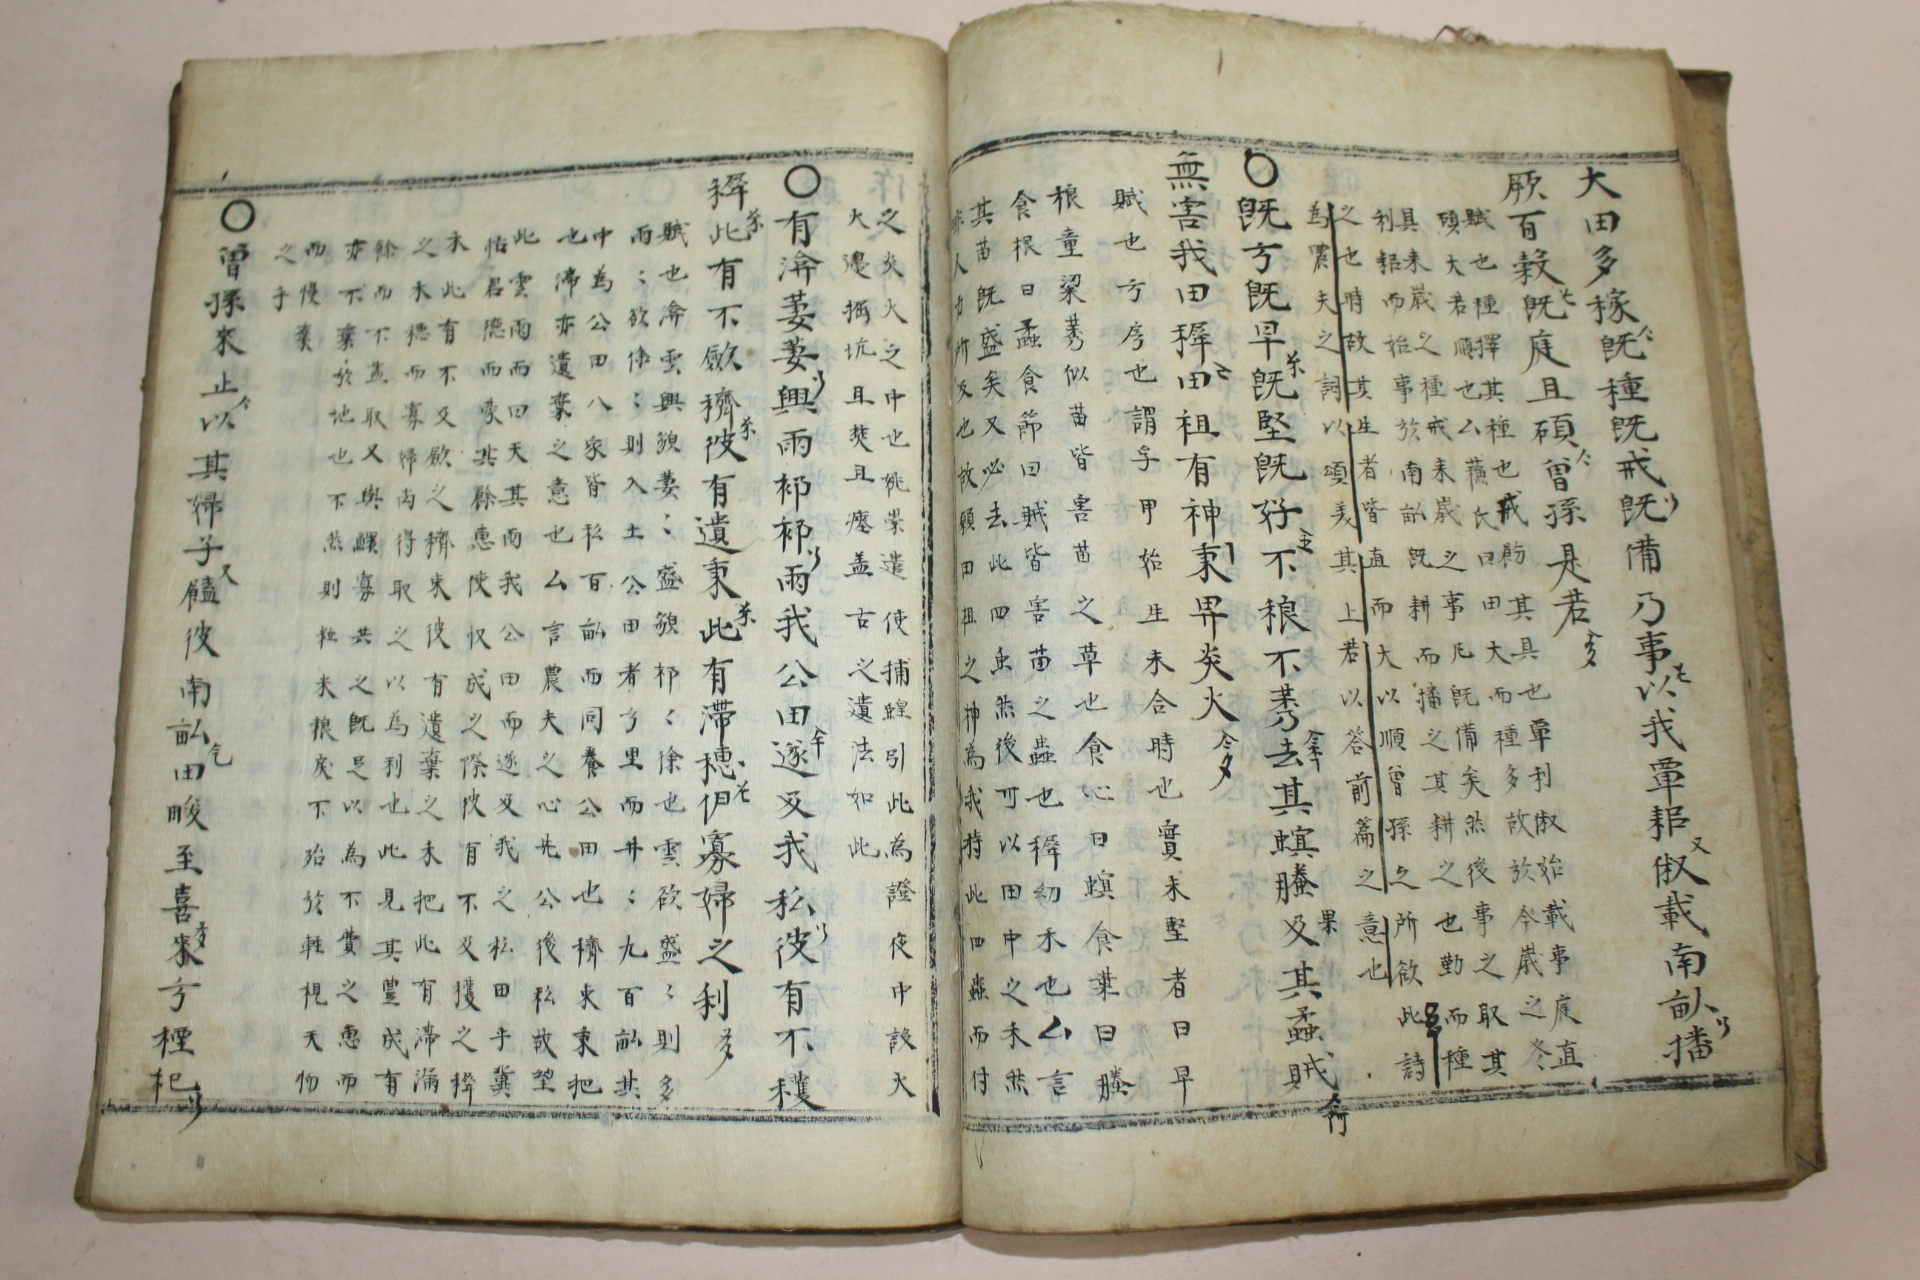 大田多稼既種既戒既備乃事以我覃耜俶載南畝播
厥百穀既庭且碩曾孫是若
賦也種擇其種也戒飭其具也覃利俶始載事庭直
碩大若順也厶蘓氏曰田大而種多故於今歳之冬
具来歳之種戒来歳之事凡既備矣然後事之取其
利耜而始事於南畝既耕而播之其耕之也勤而種
之也時故其生者皆直而大以順曾孫之所欲此詩
為農夫之詞以頌美其上若以答前篇之意也
○既方既早既堅既好不稂不莠去其螟螣及其蟊賊
無害我田稺田祖有神秉畀炎火
賦也方房也謂孚甲始生未合時也實未堅者曰早
稂童梁莠似苗皆害苗之草也食心曰螟食葉曰螣
食根曰蟊食節曰賊皆害苗之蟲也稺幼禾也厶言
其苗既盛矣又必去此四虫然後可以田中之禾然
非人力所及也故願田祖之神為我持此四蟲而付
之炎火之中也姚崇遣使捕蝗引此為證夜中設火
火邊掘坑且焚且瘞盖古之遺法如此
○有渰萋萋興雨祁祁雨我公田遂及我私彼有不穫
稺此有不斂穧彼有遺秉此有滞穗伊寡婦之利
賦也渰雲興貌萋〻盛貌祁〻徐也雲欲盛〻則多
雨〻欲徐〻則入土公田者方里而井〻九百畝其
中為公田八家皆私百畝而同養公田也穧束秉把
也滯亦遺棄之意也厶言農夫之心先公後私故望
此雲雨而曰天其雨我公田而遂及我之私田乎冀
怙君德而蒙其餘惠使収成之際彼有不及獲之稺
禾此有不及斂之穧束彼有遺棄之禾把此有滯漏
之禾穂而寡婦尚得取之以為利也此見其豊成有
餘而不盡取又與鰥寡共之既足以為不費之惠而
亦不棄於地也不然則粒米狼戾不殆於軽視天物
而慢棄
之乎
○曾孫來止以其婦子饁彼南畝田畯至喜來方禋祀